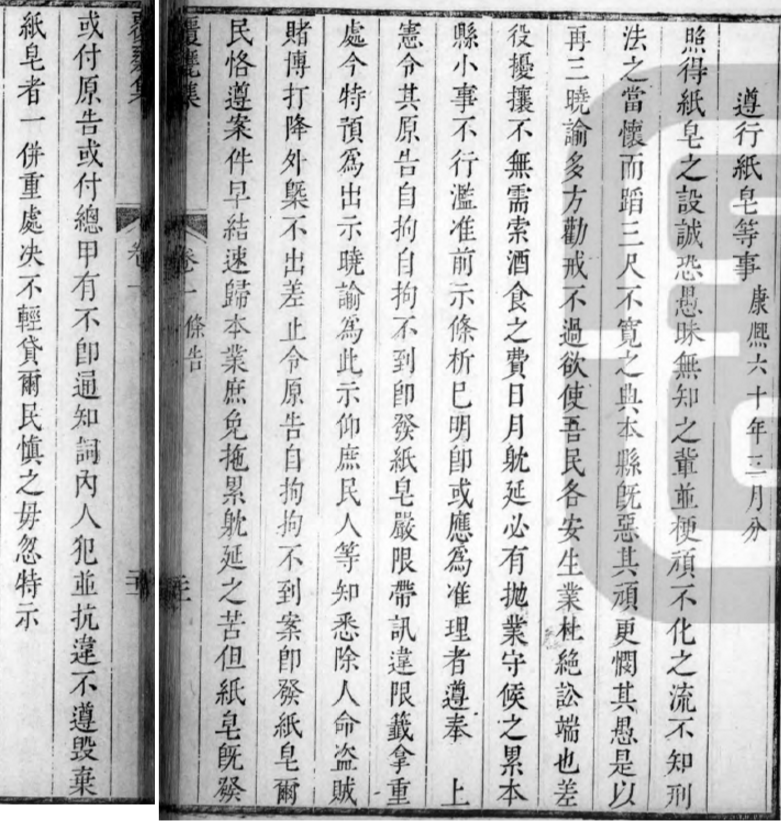 遵行紙皂等事 康熙六十年三月分
照得紙皂之設誠恐愚昧無知之輩並梗頑不化之流不知刑
法之當懷而蹈三尺不寬之典本縣既惡其頑更憫其愚是以
再三曉諭多方勸戒不過欲使吾民各安生業杜絶訟端也差
役擾攘不無需索酒食之費日月躭延必有抛業守候之累本
縣小事不行濫准前示條析已明卽或應爲准理者遵奉 上
憲令其原告自拘自拘不到卽發紙皂嚴限帶訊違限籖拿重
處今特預爲出示曉諭爲此示仰庶民人等知悉除人命盜賊
賭博打降外槩不出差止令原告自拘拘不到案卽發紙皂爾
民恪遵案件早結速歸本業庶免拖累躭延之苦但紙皂旣發
覆甕集 卷一 條告
覆甕集 卷一
或付原告或付總甲有不卽通知詞內人犯並抗違不遵毀棄
紙皂者一併重處决不輕貸爾民慎之毋忽特示